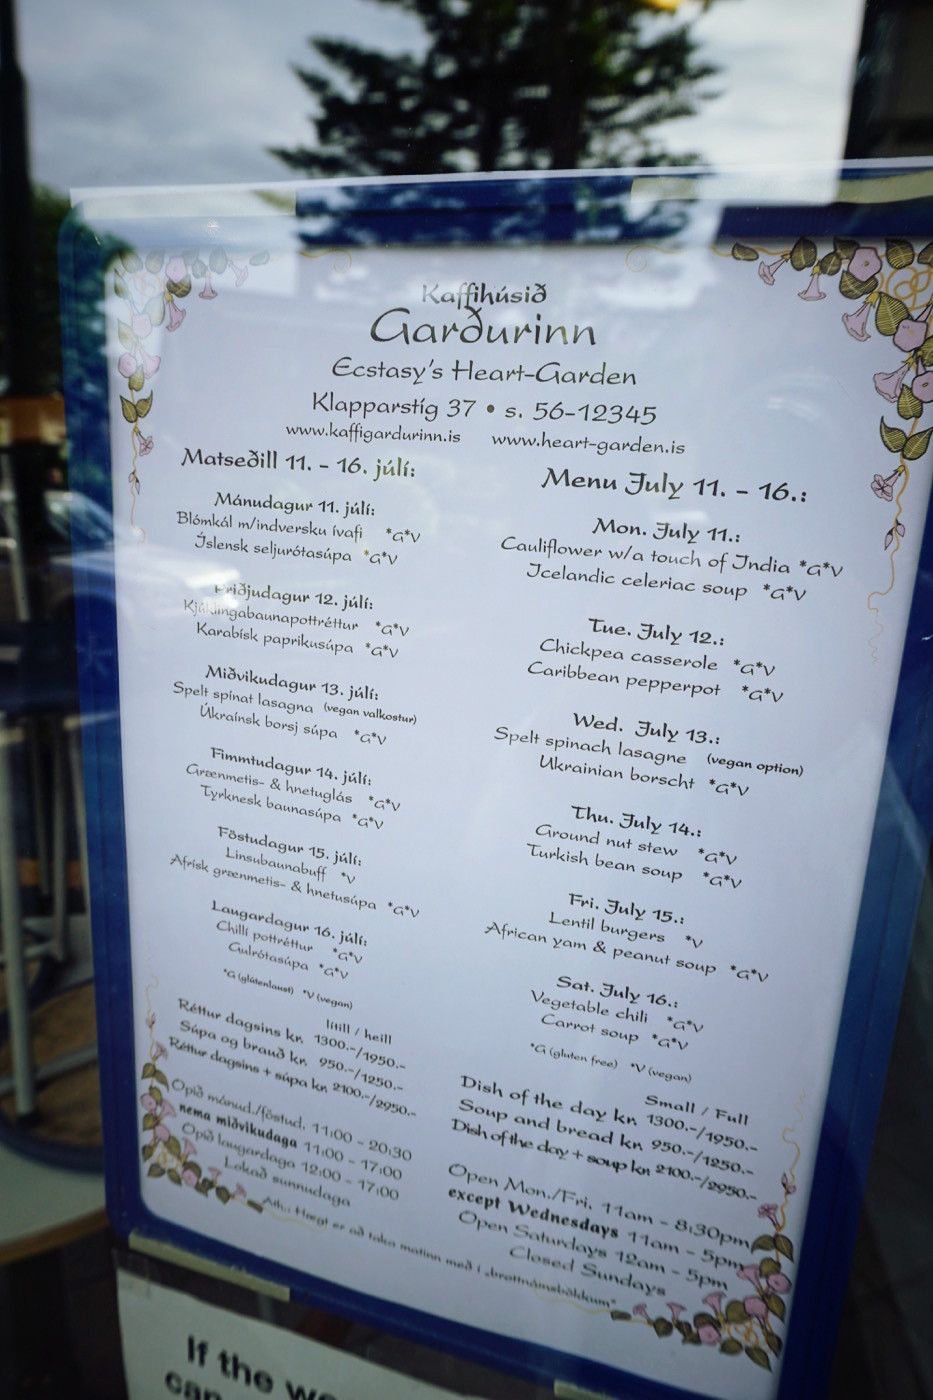 Kaffihúsið
Garðurinn
Ecstasy's Heart-Garden
Klapparstíg 37 • s. 56-12345
www.kaffigardurinn.is www.heart-garden.is
Matseðill 11. - 16. júlí:
Mánudagur 11. júlí:
Blómkál m/indversku ívafi *G*V
Íslensk seljurótasúpa *G*V
Þriðjudagur 12. júlí:
Kjúklingabaunapottréttur *G*V
Karabísk paprikusúpa *G*V
Miðvikudagur 13. júlí:
Spelt spínat lasagna (vegan valkostur)
Úkraínsk borsj súpa *G*V
Fimmtudagur 14. júlí:
Grænmetis- & hnetuglás *G*V
Tyrknesk baunasúpa *G*V
Föstudagur 15. júlí:
Linsubaunabuff *V
Afrísk grænmetis- & hnetusúpa *G*V
Laugardagur 16. júlí:
Chillí pottréttur *G*V
Gulrótasúpa *G*V
*G (glútenlaust) *V (vegan)
lítill / heill
Réttur dagsins kr. 1300.-/1950.-
Súpa og brauð kr. 950.-/1250.-
Réttur dagsins + súpa kr. 2100.-/2950.-
Opið mánud./föstud. 11:00 - 20:30
nema miðvikudaga 11:00 - 17:00
Opið laugardaga 12:00 - 17:00
Lokað sunnudaga
Menu July 11. - 16.:
Mon. July 11.:
Cauliflower w/a touch of India *G*V
Icelandic celeriac soup *G*V
Tue. July 12.:
Chickpea casserole *G*V
Caribbean pepperpot *G*V
Wed. July 13.:
Spelt spinach lasagne (vegan option)
Ukrainian borscht *G*V
Thu. July 14.:
Ground nut stew *G*V
Turkish bean soup *G*V
Fri. July 15.:
Lentil burgers *V
African yam & peanut soup *G*V
Sat. July 16.:
Vegetable chili *G*V
Carrot soup *G*V
*G (gluten free) *V (vegan)
Small / Full
Dish of the day kr. 1300.-/1950.-
Soup and bread kr. 950.-/1250.-
Dish of the day + soup kr. 2100.-/2950.-
Open Mon./Fri. 11am - 8:30pm
except Wednesdays 11am - 5pm
Open Saturdays 12am - 5pm
Closed Sundays
Ath.: Hægt er að taka matinn með í „brottnámsbökkum"
If the we
can